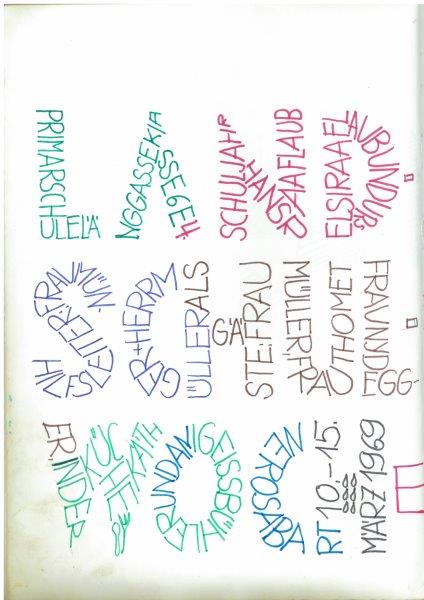 PRIMARSCH
ULELÄ
NGGASSEKLA
SSE6E4.
SCHULJAHR
HANSR
AAFLAUB
ELSIRAAFL
AUBUNDURS
HILFSLEITER:FRAUMÜN
GER+HERRM
ÜLLERALS
GÄ
STE:FRAU
MÜLLER,FR
AUTHOMET
FRAUNDEGG-
ER.INDER
KÜCHE:KÄTHI
GEISSBÜHLERUNDANNEROSABÄ
RT10.-15.
MÄRZ1969